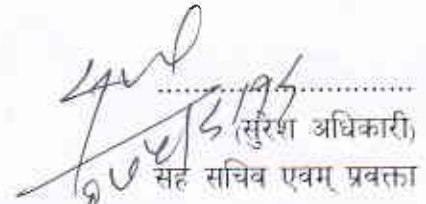 ..............................
(सुरेश अधिकारी)
सह सचिव एवम् प्रवक्ता